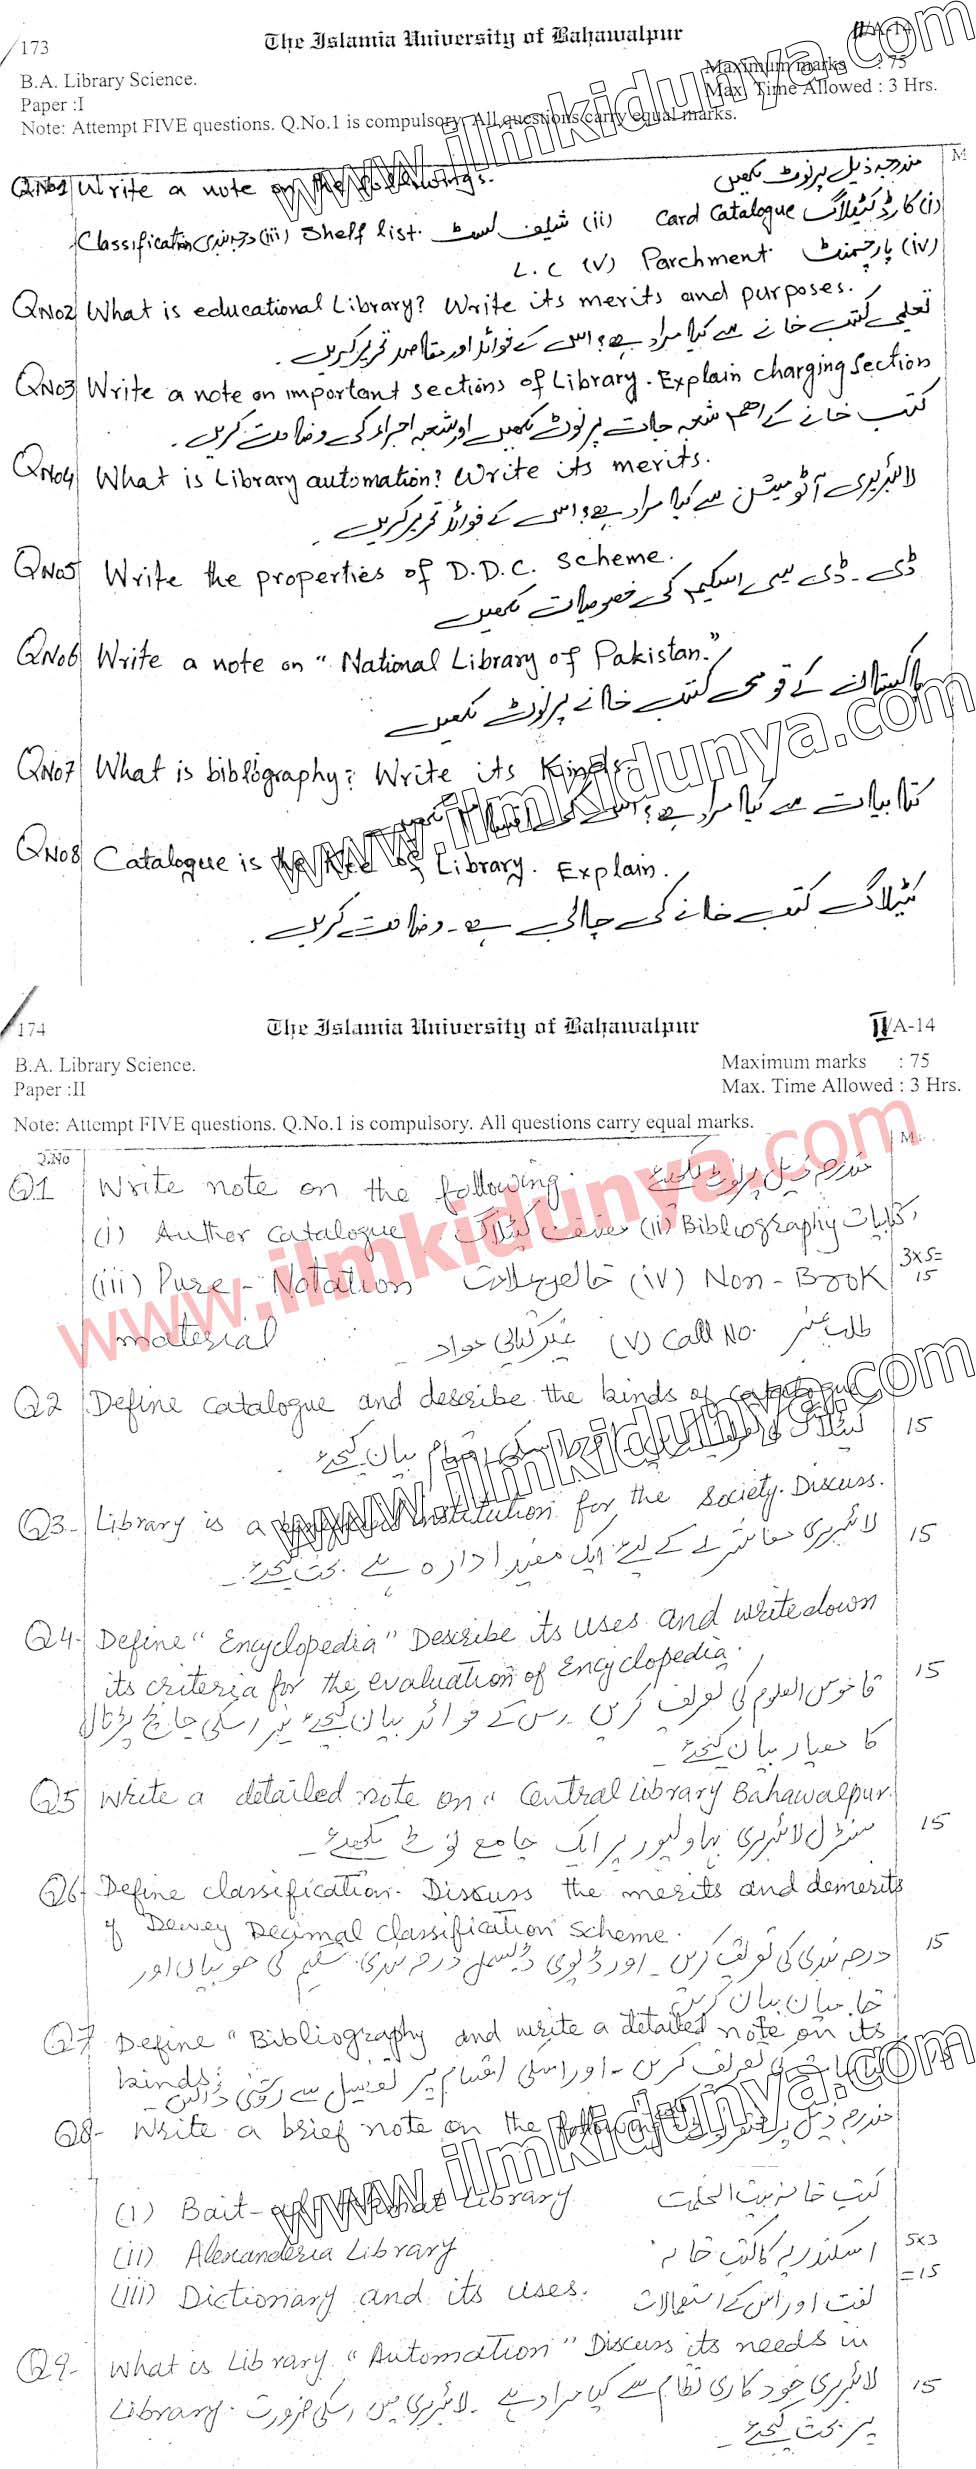 173
The Islamia University of Bahawalpur
II/A-14
B.A. Library Science.
Maximum marks : 75
Paper :I
Max. Time Allowed : 3 Hrs.
Note: Attempt FIVE questions. Q.No.1 is compulsory. All questions carry equal marks.
M
QNo1 Write a note on the followings. مندرجہ ذیل پر نوٹ لکھیں
(i) کارڈ کیٹلاگ Card Catalogue (ii) شیلف لسٹ Shelf list. (iii) درجہ بندی Classification
(iv) پارچمنٹ Parchment (v) L.C
QNo2 What is educational Library? Write its merits and purposes.
تعلیمی کتب خانے سے کیا مراد ہے؟ اس کے فوائد اور مقاصد تحریر کریں۔
QNo3 Write a note on important sections of Library. Explain charging section
کتب خانے کے اہم شعبہ جات پر نوٹ لکھیں اور شعبہ اجراء کی وضاحت کریں۔
QNo4 What is Library automation? Write its merits.
لائبریری آٹومیشن سے کیا مراد ہے؟ اس کے فوائد تحریر کریں۔
QNo5 Write the properties of D.D.C. Scheme.
ڈی۔ڈی سی اسکیم کی خصوصیات لکھیں
QNo6 Write a note on "National Library of Pakistan."
پاکستان کے قومی کتب خانے پر نوٹ لکھیں
QNo7 What is biblography? Write its Kinds.
کتابیات سے کیا مراد ہے؟ اس کی اقسام لکھیں
QNo8 Catalogue is the Kee of Library. Explain.
کیٹلاگ کتب خانے کی چابی ہے۔ وضاحت کریں۔
www.ilmkidunya.com
www.ilmkidunya.com
174
The Islamia University of Bahawalpur
II/A-14
B.A. Library Science.
Maximum marks : 75
Paper :II
Max. Time Allowed : 3 Hrs.
Note: Attempt FIVE questions. Q.No.1 is compulsory. All questions carry equal marks.
Q.No
M.
Q1 Write note on the following. مندرجہ ذیل پر نوٹ لکھیئے
(i) Auther catalogue مصنف کیٹلاگ (ii) Bibliography کتابیات
(iii) Pure-Notation خالص علامت (iv) Non-Book 3x5=15
material غیر کتابی مواد۔ (v) Call No. طلب نمبر
Q2 Define catalogue and describe the kinds of catalogue
کیٹلاگ کی اقسام بیان کیجئے۔ 15
Q3- Library is a institution for the Society. Discuss.
لائبریری معاشرے کے لیئے ایک مفید ادارہ ہے بحث کیجئے۔ 15
Q4- Define "Encyclopedia" Describe its uses and write down
its criteria for the evaluation of Encyclopedia. 15
قاموس العلوم کی تعریف کریں۔ اس کے فوائد بیان کیجئے نیز اسکی جانچ پڑتال
کا معیار بیان کیجئے۔
Q5 Write a detailed note on "Central Library Bahawalpur.
سنٹرل لائبریری بہاولپور پر ایک جامع نوٹ لکھیئے۔ 15
Q6- Define classification. Discuss the merits and demerits
of Dewey Decimal classification Scheme. 15
درجہ بندی کی تعریف کریں۔ اور ڈیوی ڈیسمل درجہ بندی سکیم کی خوبیاں اور
خامیاں بیان کریں
Q7 Define "Bibliography and write a detailed note on its
kinds; کی تعریف کریں۔ اور اسکی اقسام پر تفصیل سے روشنی ڈالیں۔
Q8- Write a brief note on the following مندرجہ ذیل پر
(i) Bait-ul-Hikmat Library کتب خانہ بیت الحکمت
(ii) Alexanderia Library اسکندریہ کا کتب خانہ 5x3
(iii) Dictionary and its uses. لغت اور اس کے استعمالات =15
Q9- What is Library "Automation" Discuss its needs in
Library. لائبریری خودکاری نظام سے کیا مراد ہے۔ لائبریری میں اسکی ضرورت 15
پر بحث کیجئے۔
www.ilmkidunya.com
www.ilmkidunya.com
www.ilmkidunya.com